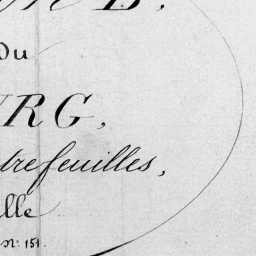 B.
Du
RG,
trefeuilles,
lle
N° 151.